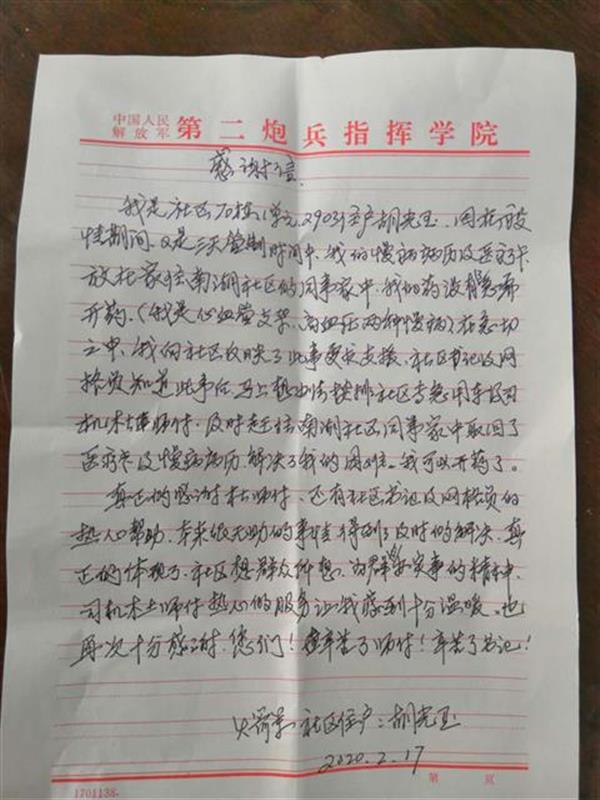 中国人民
解放军 第二炮兵指挥学院
感谢信
我是社区70栋1单元2903住户胡光玉、因在疫
情期间、又是三天管制时间中、我的慢病病历及医疗卡
放在家住南湖社区的同事家中、我的药没有急需
开药、(我是心血管支架、高血压两种慢病)在急切
之中、我向社区反映了此事要求支援、社区书记及网
格员知道此事后、马上想办法安排社区专急用车及司
机杜师付、及时赶往南湖社区同事家中取回了
医疗卡及慢病病历、解决了我的困难。我可以开药了。
真正的感谢杜师付、还有社区书记及网格员的
热心帮助、本来很无助的事情得到了及时的解决、真
正的体现了、社区想群众所想、为群众办实事的精神、
司机杜师付热心的服务让我感到十分温暖、也
再次十分感谢、您们!辛苦了师付!辛苦了书记!
社区住户:胡光玉
2020.2.17
1701138-
第 页